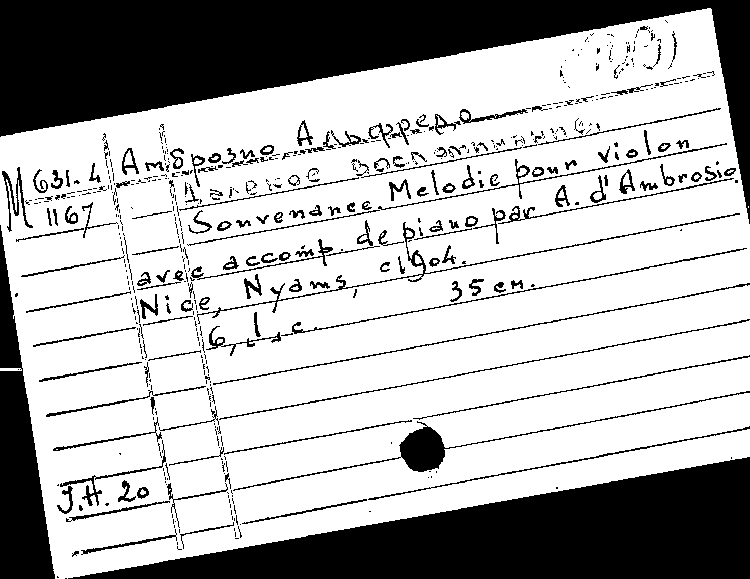 М 631.4
1167
Амброзио, Альфредо
Далекое воспоминание.
Souvenance. Melodie pour violon
avec accomp. de piano par A. d'Ambrosio.
Nice, Nyams, c1904.
6, 1, с. 35 см.
Т.Н. 20